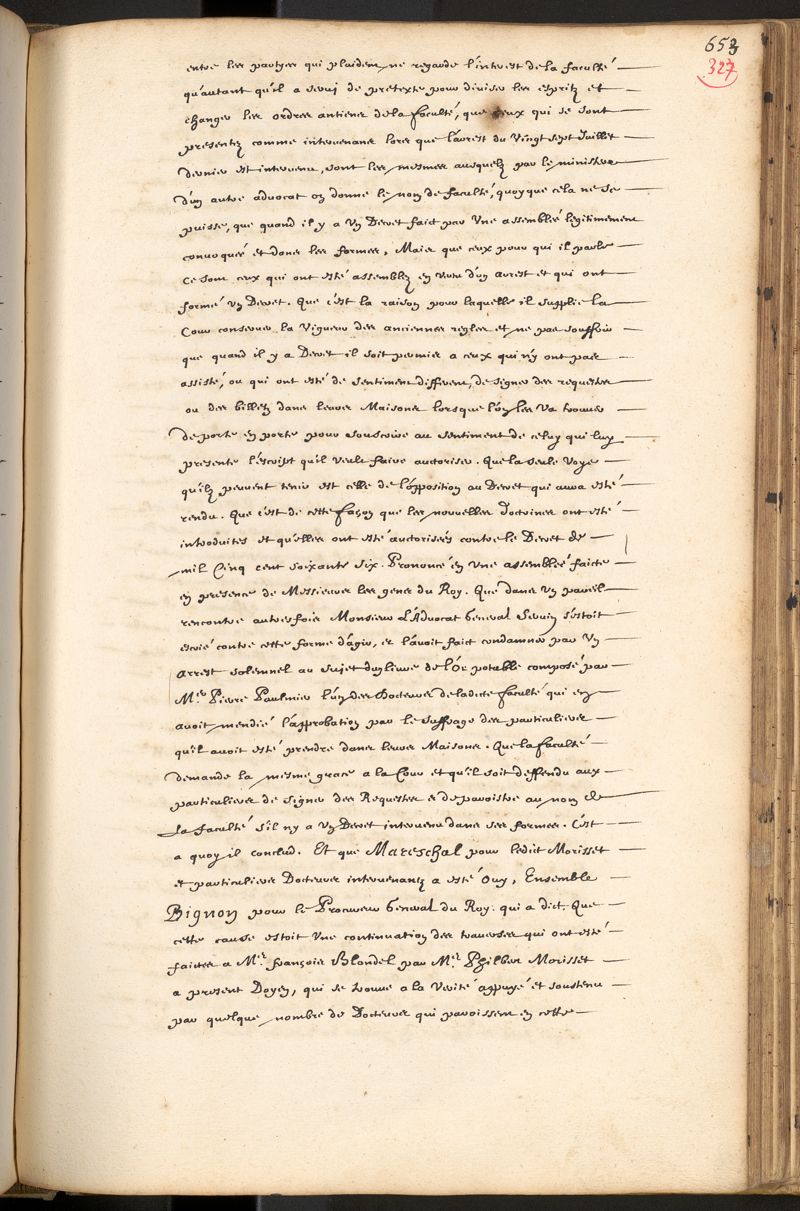 653
327
entre les partyes qui plaident, ne regarde l'interest de la faculté
qu'autant qu'il a servi de pretexte pour diviser les esprits et
changer les ordres antiens de la faculté, que ceux qui se sont
presentez comme intervenans lors que l'arrest du Vingt sept Juillet
dernier est intervenu, sont les mesmes ausquelz par le ministere
d'un autre advocat on donne le nom de faculté, quoyque cela ne se
puisse, que quand il y a un Decret faict par Une assemblée legitimement
convoquée et dans les formes, Mais que ceux pour qui il parle
Ce sont ceux qui ont esté assemblez en vertu d'un arrest et qui ont
formé un Decret. Que c'est la raison pour laquelle il supplie la
Cour conserver la Vigueur des anciennes regles et ne pas souffrir
que quand il y a Decret il soit permis a ceux qui n'y ont pas
assisté, ou qui ont esté de sentiment different, de signer des requestes
ou des billetz dans leurs Maisons lorsque l'on les va trouver
de porte en porte pour souscrire au sentiment de celuy qui luy
presente l'escript qu'il veult faire auctoriser. Que la seule voye
qu'ilz peuvent tenir est celle de l'opposition au Decret qui aura esté
rendu. Que c'est de cette façon que les nouvelles doctrines ont esté
introduites et qu'elles ont esté auctorisées contre le Decret de
mil Cinq cent soixante six. Prononcé en Une assemblée faicte
en presence de Messieurs les gens du Roy. Que dans un pareil
rencontre autresfois Monsieur L'Advocat General Servin s'estoit
escrié contre cette forme d'agir, et l'avoit faict condamner par un
Arrest solemnel au sujet du livre de l'Or potable composé par
Mre Pierre Paulmier l'un des Docteurs de ladicte faculté qui en
avoit mendié l'approbation par le suffrage des particuliers
qu'il avoit esté prendre dans leurs Maisons. Que la faculté
demande la mesme grace a la Cour et qu'il soit deffendu aux
particuliers de signer des Requestes & de paroistre au nom de
La faculté s'il n'y a un Decret intervenu dans ses formes. C'est
a quoy il conclud. Et que Mareschal pour ledict Morisset
et particuliers Docteurs intervenantz a esté Ouy, Ensemble
Bignon pour le Procureur General du Roy. qui a dict. Que
cette cause estoit Une continuation des traverses qui ont esté
faictes a Mr François Blondel par Mr Philbert Morisset
a present Doyen, qui se trouve a la verité appuyé et soustenu
par quelque nombre de Docteurs qui paroissent en cette